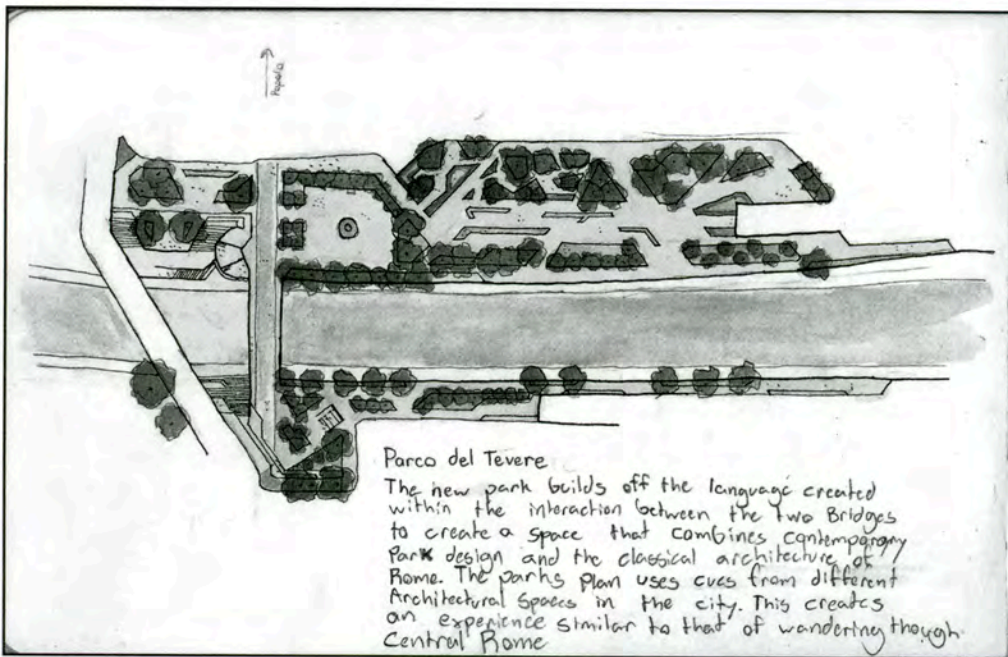 Popolo
Parco del Tevere
The new park builds off the language created
within the interaction between the two Bridges
to create a space that combines contemporary
Park design and the classical architecture of
Rome. The parks plan uses cues from different
Architectural Spaces in the city. This creates
an experience similar to that of wandering though
Central Rome